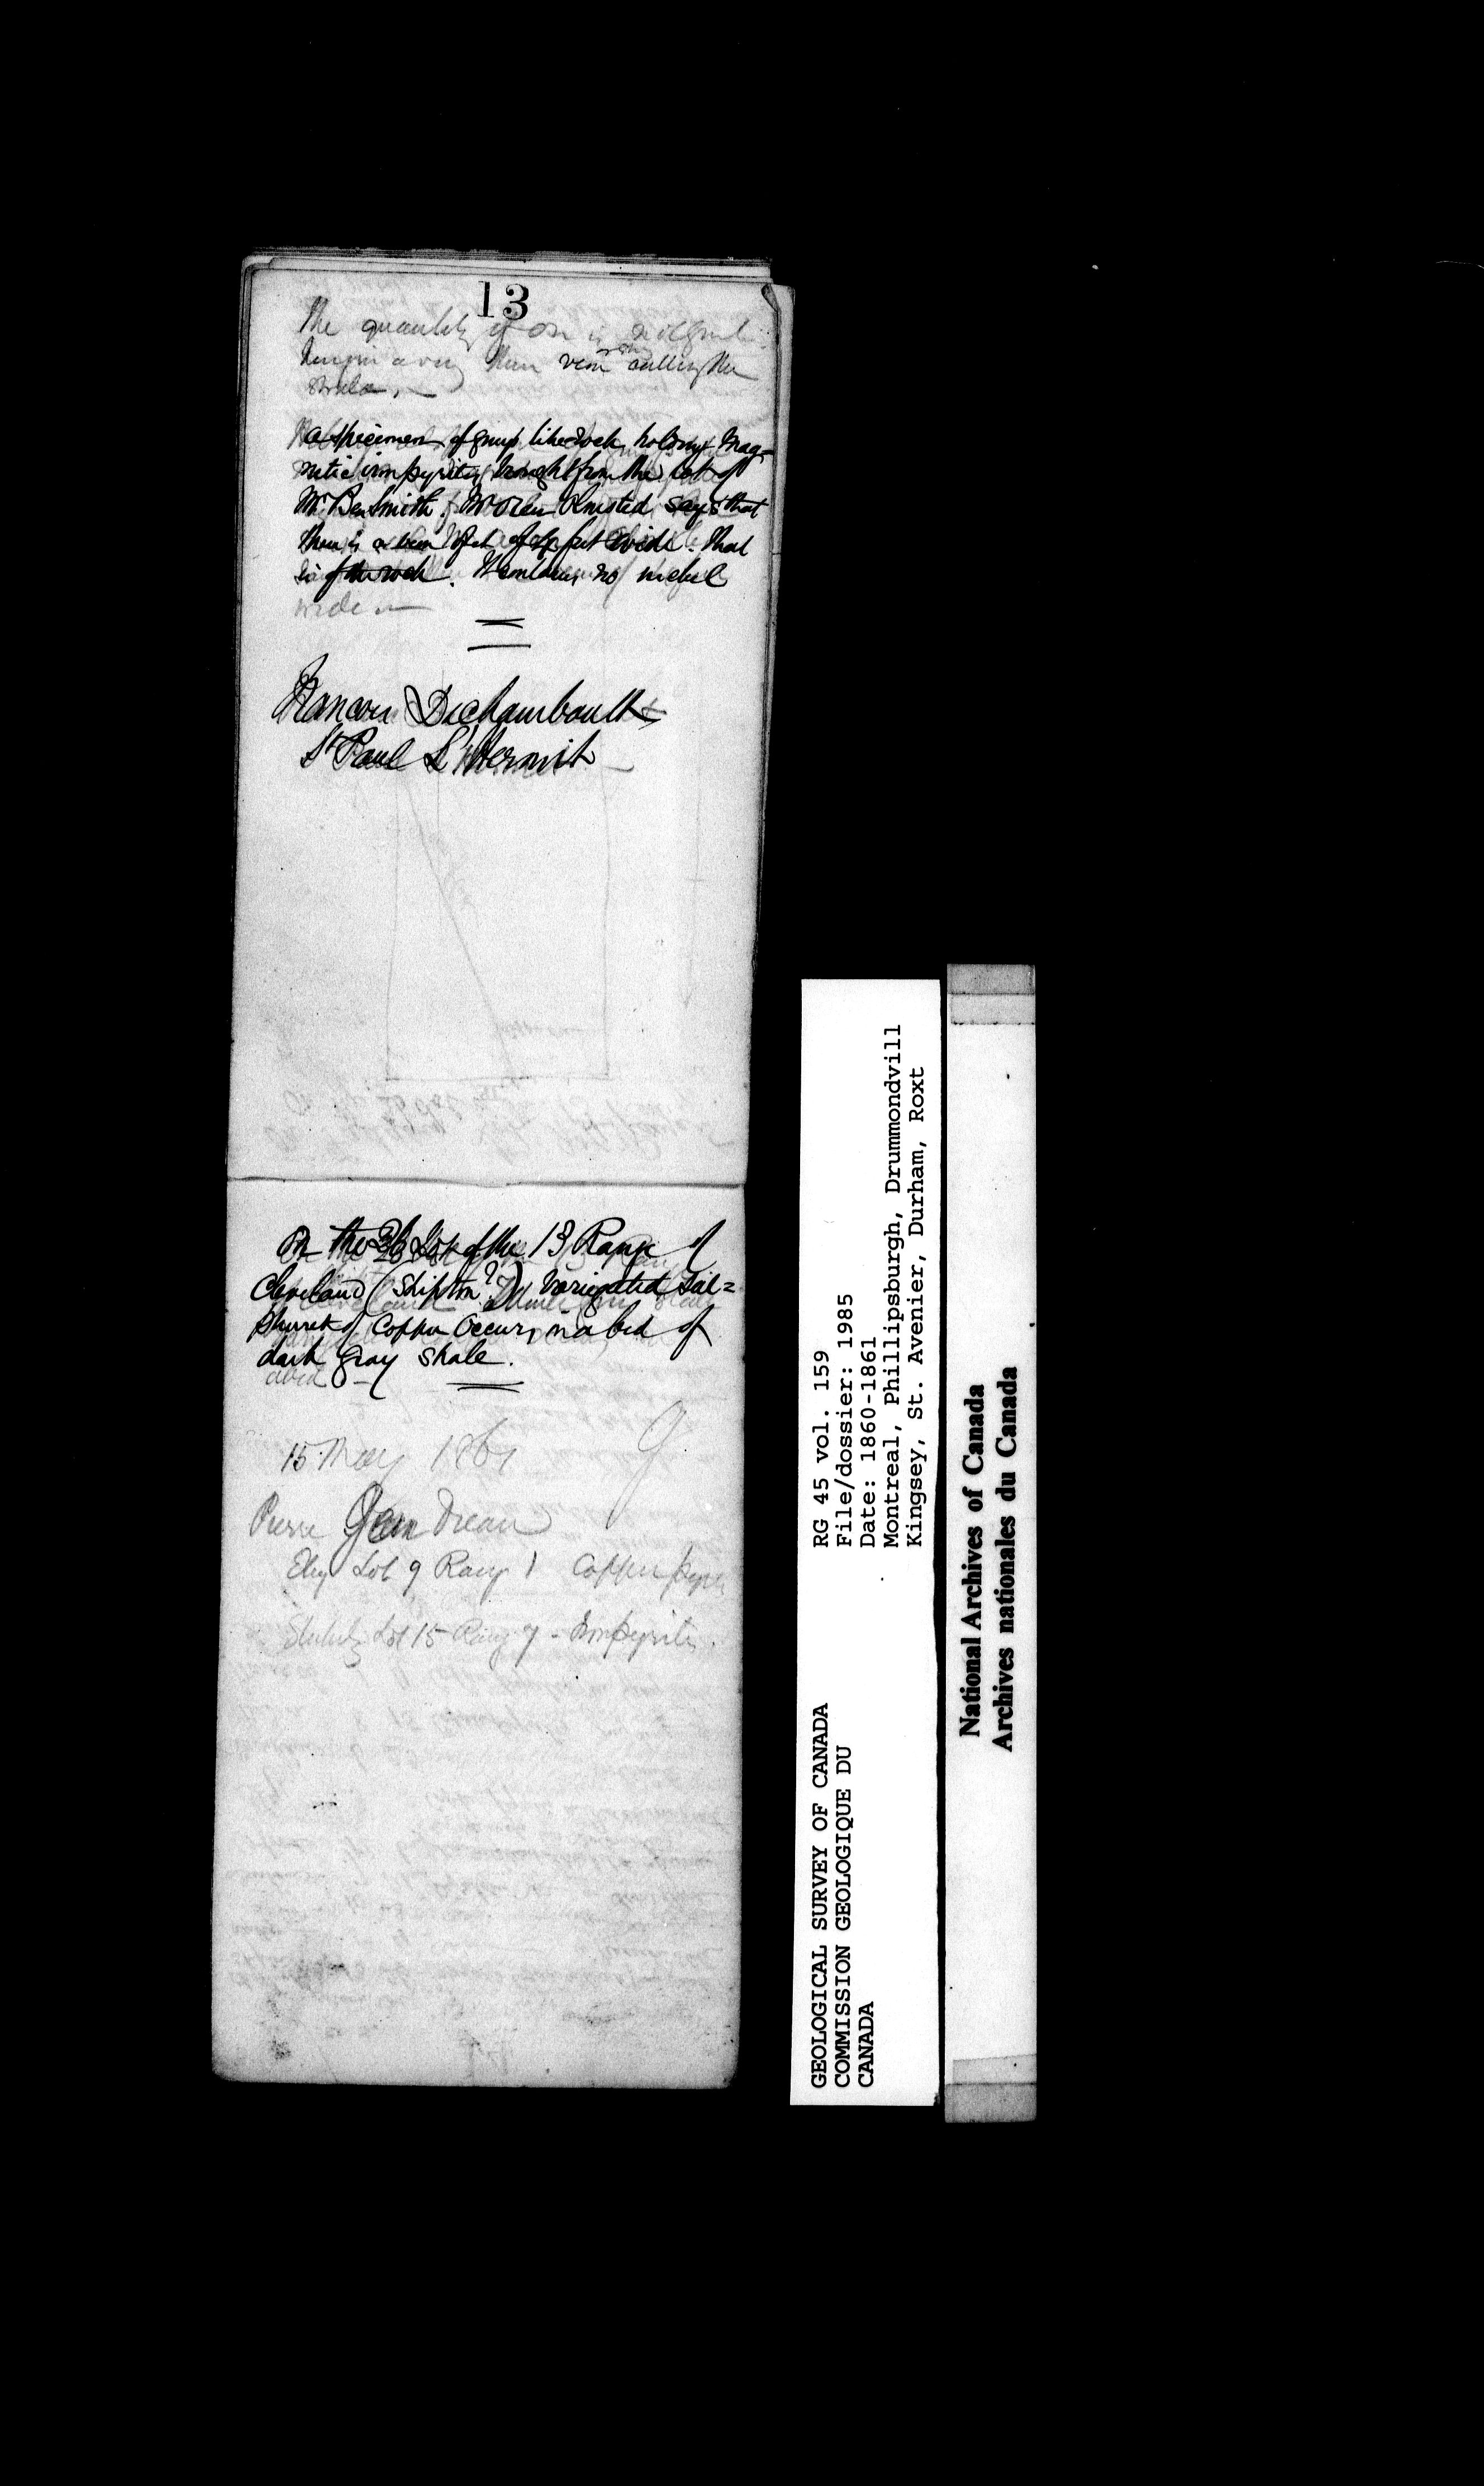 13
The quantity of ore is
in a very thin vein cutting the
strata. —
a specimen of gneiss like rock holding Mag-
netic iron pyrites brought from the lot of
Mr Ben Smith. Mr Olmsted says that
there is a vein of it of feet wide. that
is of the rock. It contains no nickel
wide —
Francois Dechambault
St Paul L'Hermit
On the 26 Lot of the 13 Range of
Cleveland (Shipton?) Variegated Sul=
phuret of Copper occurs in a bed of
dark gray shale.
a bed
15 May 1861
Pierre Gendreau
Ely Lot 9 Range 1 Copper pyrites
Stukely Lot 15 Range 7 - Iron pyrites.
RG 45 vol. 159
File/dossier: 1985
Date: 1860-1861
Montreal, Phillipsburgh, Drummondvill
Kingsey, St. Avenier, Durham, Roxt
GEOLOGICAL SURVEY OF CANADA
COMMISSION GEOLOGIQUE DU
CANADA
National Archives of Canada
Archives nationales du Canada